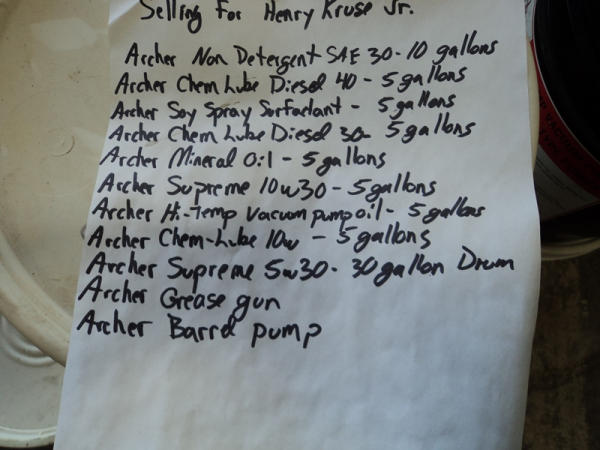 Selling For Henry Kruse Jr.
Archer Non Detergent SAE 30 - 10 gallons
Archer Chem Lube Diesel 40 - 5 gallons
Archer Soy Spray Surfactant - 5 gallons
Archer Chem Lube Diesel 30 - 5 gallons
Archer Mineral Oil - 5 gallons
Archer Supreme 10w30 - 5 gallons
Archer Hi-Temp Vacuum pump oil - 5 gallons
Archer Chem-Lube 10w - 5 gallons
Archer Supreme 5w30 - 30 gallon Drum
Archer Grease gun
Archer Barrel pump